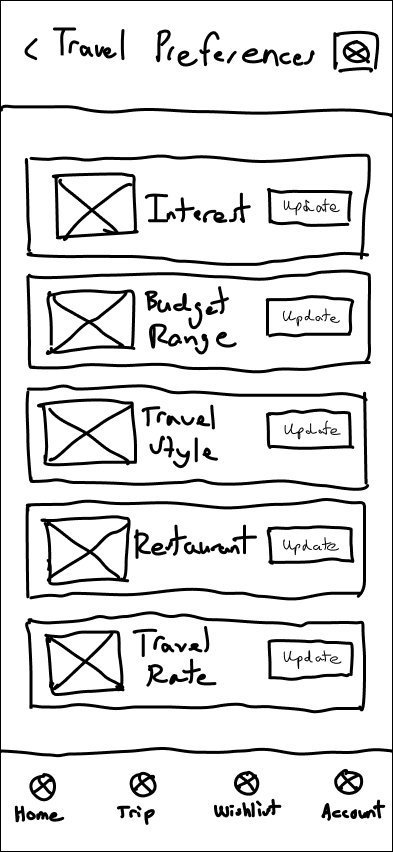 < Travel Preferences
Interest
Update
Budget
Range
Update
Travel
Style
Update
Restaurant
Update
Travel
Rate
Update
Home Trip Wishlist Account